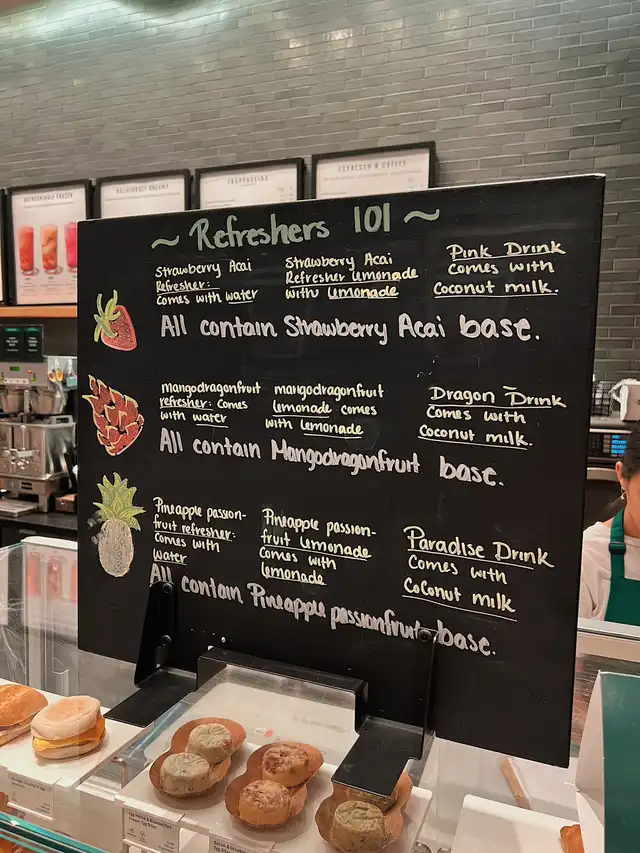 REFRESHINGLY FROZEN
DELICIOUSLY CREAMY
FRAPPUCCINO
ESPRESSO & COFFEE
~ Refreshers 101 ~
Strawberry Acai
Refresher:
comes with water
Strawberry Acai
Refresher lemonade
with lemonade
Pink Drink
Comes with
Coconut milk.
All contain Strawberry Acai base.
mangodragonfruit
refresher: comes
with water
mangodragonfruit
lemonade comes
with lemonade
Dragon Drink
Comes with
Coconut milk.
All contain Mangodragonfruit base.
Pineapple passion-
fruit refresher:
comes with
water
Pineapple passion-
fruit lemonade
Comes with
lemonade
Paradise Drink
Comes with
Coconut milk
All contain Pineapple passionfruit base.